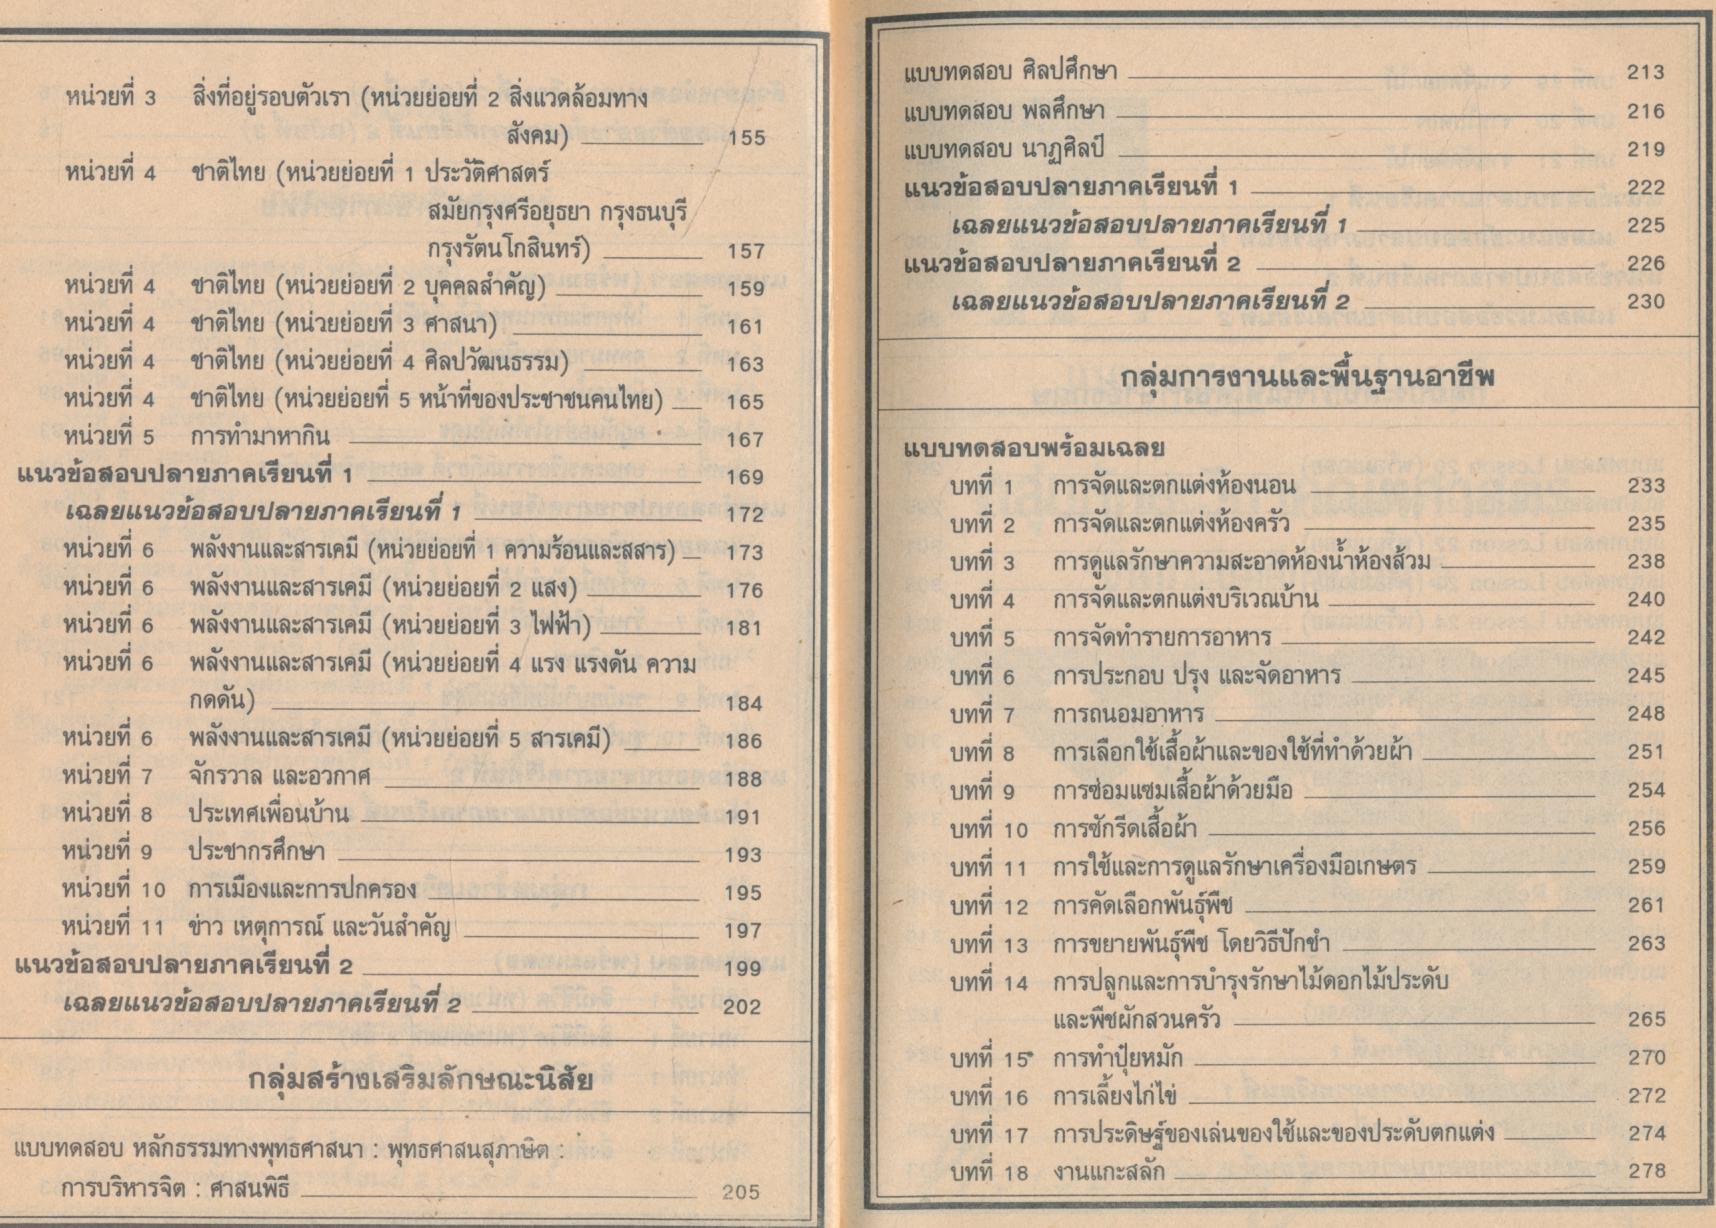 หน่วยที่ 3 สิ่งที่อยู่รอบตัวเรา (หน่วยย่อยที่ 2 สิ่งแวดล้อมทาง
สังคม) 155
หน่วยที่ 4 ชาติไทย (หน่วยย่อยที่ 1 ประวัติศาสตร์
สมัยกรุงศรีอยุธยา กรุงธนบุรี
กรุงรัตนโกสินทร์) 157
หน่วยที่ 4 ชาติไทย (หน่วยย่อยที่ 2 บุคคลสำคัญ) 159
หน่วยที่ 4 ชาติไทย (หน่วยย่อยที่ 3 ศาสนา) 161
หน่วยที่ 4 ชาติไทย (หน่วยย่อยที่ 4 ศิลปวัฒนธรรม) 163
หน่วยที่ 4 ชาติไทย (หน่วยย่อยที่ 5 หน้าที่ของประชาชนคนไทย) 165
หน่วยที่ 5 การทำมาหากิน 167
แนวข้อสอบปลายภาคเรียนที่ 1 169
เฉลยแนวข้อสอบปลายภาคเรียนที่ 1 172
หน่วยที่ 6 พลังงานและสารเคมี (หน่วยย่อยที่ 1 ความร้อนและสสาร) 173
หน่วยที่ 6 พลังงานและสารเคมี (หน่วยย่อยที่ 2 แสง) 176
หน่วยที่ 6 พลังงานและสารเคมี (หน่วยย่อยที่ 3 ไฟฟ้า) 181
หน่วยที่ 6 พลังงานและสารเคมี (หน่วยย่อยที่ 4 แรง แรงดัน ความ
กดดัน) 184
หน่วยที่ 6 พลังงานและสารเคมี (หน่วยย่อยที่ 5 สารเคมี) 186
หน่วยที่ 7 จักรวาล และอวกาศ 188
หน่วยที่ 8 ประเทศเพื่อนบ้าน 191
หน่วยที่ 9 ประชากรศึกษา 193
หน่วยที่ 10 การเมืองและการปกครอง 195
หน่วยที่ 11 ข่าว เหตุการณ์ และวันสำคัญ 197
แนวข้อสอบปลายภาคเรียนที่ 2 199
เฉลยแนวข้อสอบปลายภาคเรียนที่ 2 202
กลุ่มสร้างเสริมลักษณะนิสัย
แบบทดสอบ หลักธรรมทางพุทธศาสนา : พุทธศาสนสุภาษิต :
การบริหารจิต : ศาสนพิธี 205
แบบทดสอบ ศิลปศึกษา 213
แบบทดสอบ พลศึกษา 216
แบบทดสอบ นาฏศิลป์ 219
แนวข้อสอบปลายภาคเรียนที่ 1 222
เฉลยแนวข้อสอบปลายภาคเรียนที่ 1 225
แนวข้อสอบปลายภาคเรียนที่ 2 226
เฉลยแนวข้อสอบปลายภาคเรียนที่ 2 230
กลุ่มการงานและพื้นฐานอาชีพ
แบบทดสอบพร้อมเฉลย
บทที่ 1 การจัดและตกแต่งห้องนอน 233
บทที่ 2 การจัดและตกแต่งห้องครัว 235
บทที่ 3 การดูแลรักษาความสะอาดห้องน้ำห้องส้วม 238
บทที่ 4 การจัดและตกแต่งบริเวณบ้าน 240
บทที่ 5 การจัดทำรายการอาหาร 242
บทที่ 6 การประกอบ ปรุง และจัดอาหาร 245
บทที่ 7 การถนอมอาหาร 248
บทที่ 8 การเลือกใช้เสื้อผ้าและของใช้ที่ทำด้วยผ้า 251
บทที่ 9 การซ่อมแซมเสื้อผ้าด้วยมือ 254
บทที่ 10 การซักรีดเสื้อผ้า 256
บทที่ 11 การใช้และการดูแลรักษาเครื่องมือเกษตร 259
บทที่ 12 การคัดเลือกพันธุ์พืช 261
บทที่ 13 การขยายพันธุ์พืช โดยวิธีปักชำ 263
บทที่ 14 การปลูกและการบำรุงรักษาไม้ดอกไม้ประดับ
และพืชผักสวนครัว 265
บทที่ 15 การทำปุ๋ยหมัก 270
บทที่ 16 การเลี้ยงไก่ไข่ 272
บทที่ 17 การประดิษฐ์ของเล่นของใช้และของประดับตกแต่ง 274
บทที่ 18 งานแกะสลัก 278